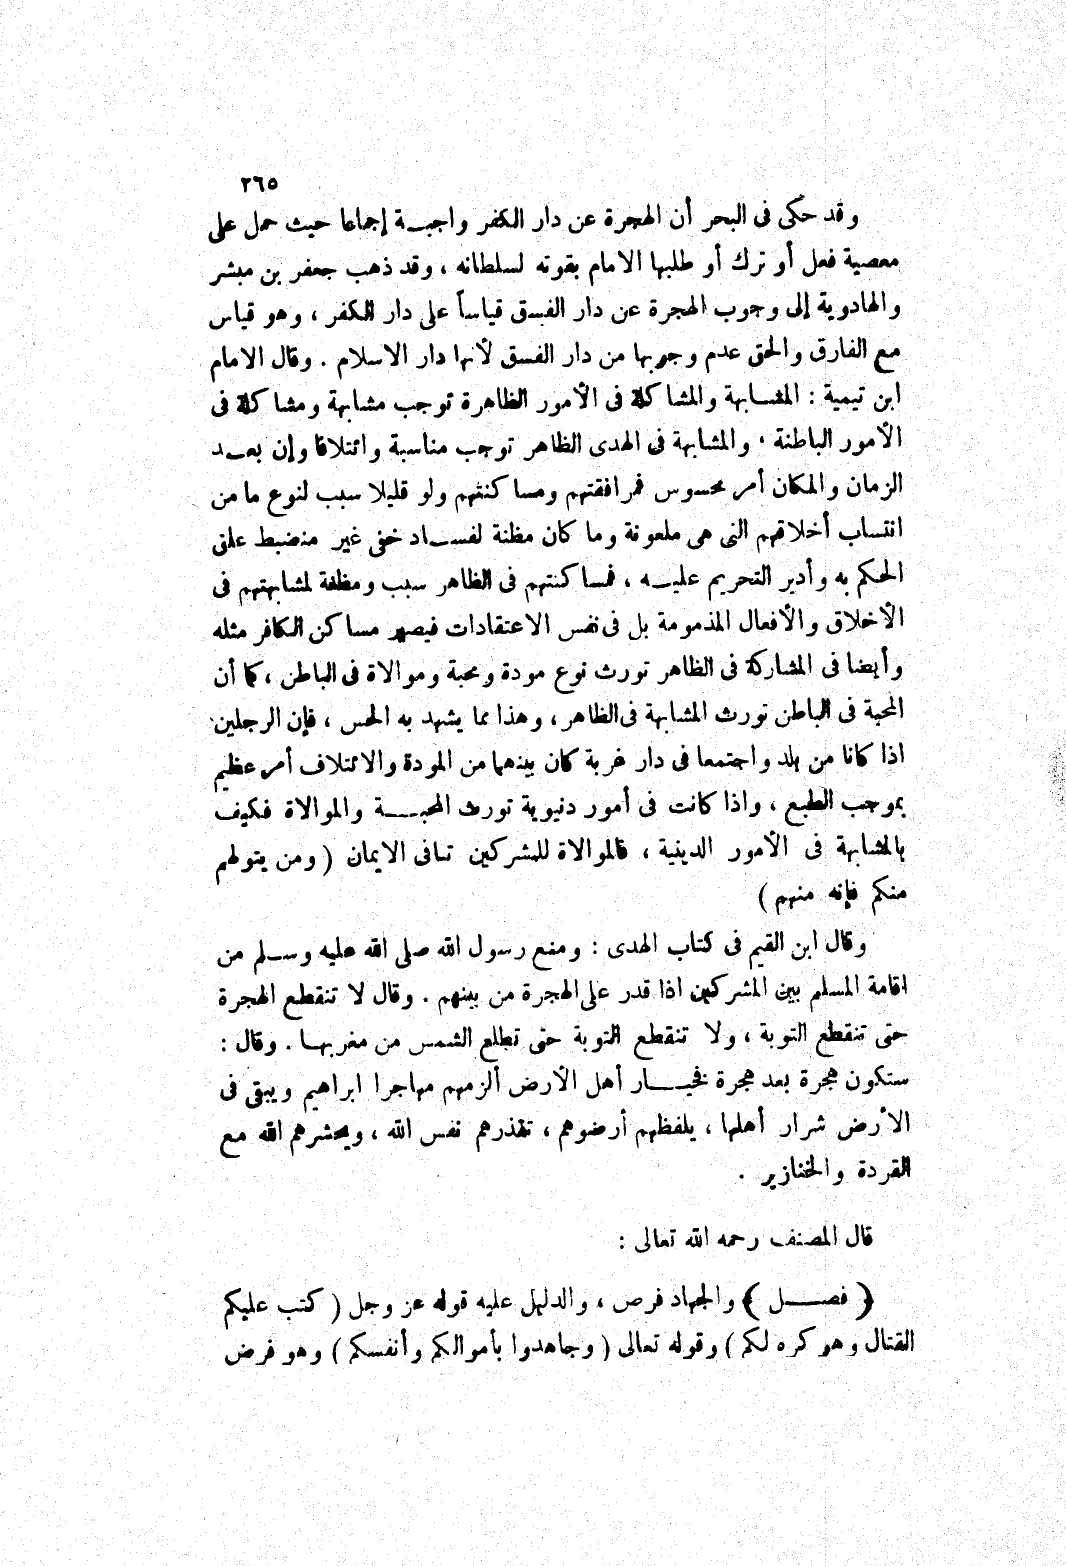 ٢٦٥
وقد حكى فى البحر أن الهجرة عن دار الكفر واجبــة إجماعا حيث حمل على
معصية فعل أو ترك أو طلبها الامام بقوته لسلطانه ، وقد ذهب جعفر بن مبشر
والهادوية إلى وجوب الهجرة عن دار الفسق قياساً على دار الكفر ، وهو قياس
مع الفارق والحق عدم وجوبها من دار الفسق لأنها دار الاسلام . وقال الامام
ابن تيمية : المشـابهة والمشاكلة فى الأمور الظاهرة توجب مشابهة ومشاكلة فى
الأمور الباطنة ، والمشابهة فى الهدى الظاهر توجب مناسبة وائتلافا وإن بعــد
الزمان والمكان أمر محسوس فمرافقتهم ومساكنتهم ولو قليلا سبب لنوع ما من
انتساب أخلاقهم التى هى ملعونة وما كان مظنة لفســاد خفى غير منضبط علق
الحكم به وأدير التحريم عليــه ، فمساكنتهم فى الظاهر سبب ومظنة لمشابهتهم فى
الأخلاق والأفعال المذمومة بل فى نفس الاعتقادات فيصير مساكن الكافر مثله
وأيضا فى المشاركة فى الظاهر تورث نوع مودة ومحبة وموالاة فى الباطن ، كما أن
المحبة فى الباطن تورث المشابهة فى الظاهر ، وهذا مما يشهد به الحس ، فإن الرجلين
اذا كانا من بلد واجتمعا فى دار غربة كان بينهما من المودة والائتلاف أمر عظيم
بموجب الطبع ، واذا كانت فى أمور دنيوية تورث المحبــــة والموالاة فكيف
بالمشابهة فى الأمور الدينية ، فالموالاة للمشركين تنافى الايمان ( ومن يتولهم
منكم فإنه منهم )
وقال ابن القيم فى كتاب الهدى : ومنع رسول الله صلى الله عليه وســلم من
اقامة المسلم بين المشركين اذا قدر على الهجرة من بينهم . وقال لا تنقطع الهجرة
حتى تنقطع التوبة ، ولا تنقطع التوبة حتى تطلع الشمس من مغربهـا . وقال :
ستكون هجرة بعد هجرة فخيــــار أهل الأرض ألزمهم مهاجرا ابراهيم ويبقى فى
الأرض شرار أهلها ، يلفظهم أرضوهم ، تقذرهم نفس الله ، ويحشرهم الله مع
القردة والخنازير .
قال المصنف رحمه الله تعالى :
﴿ فصــــل ﴾ والجهاد فرض ، والدليل عليه قوله عز وجل ( كتب عليكم
القتال وهو كره لكم ) وقوله تعالى ( وجاهدوا بأموالكم وأنفسكم ) وهو فرض